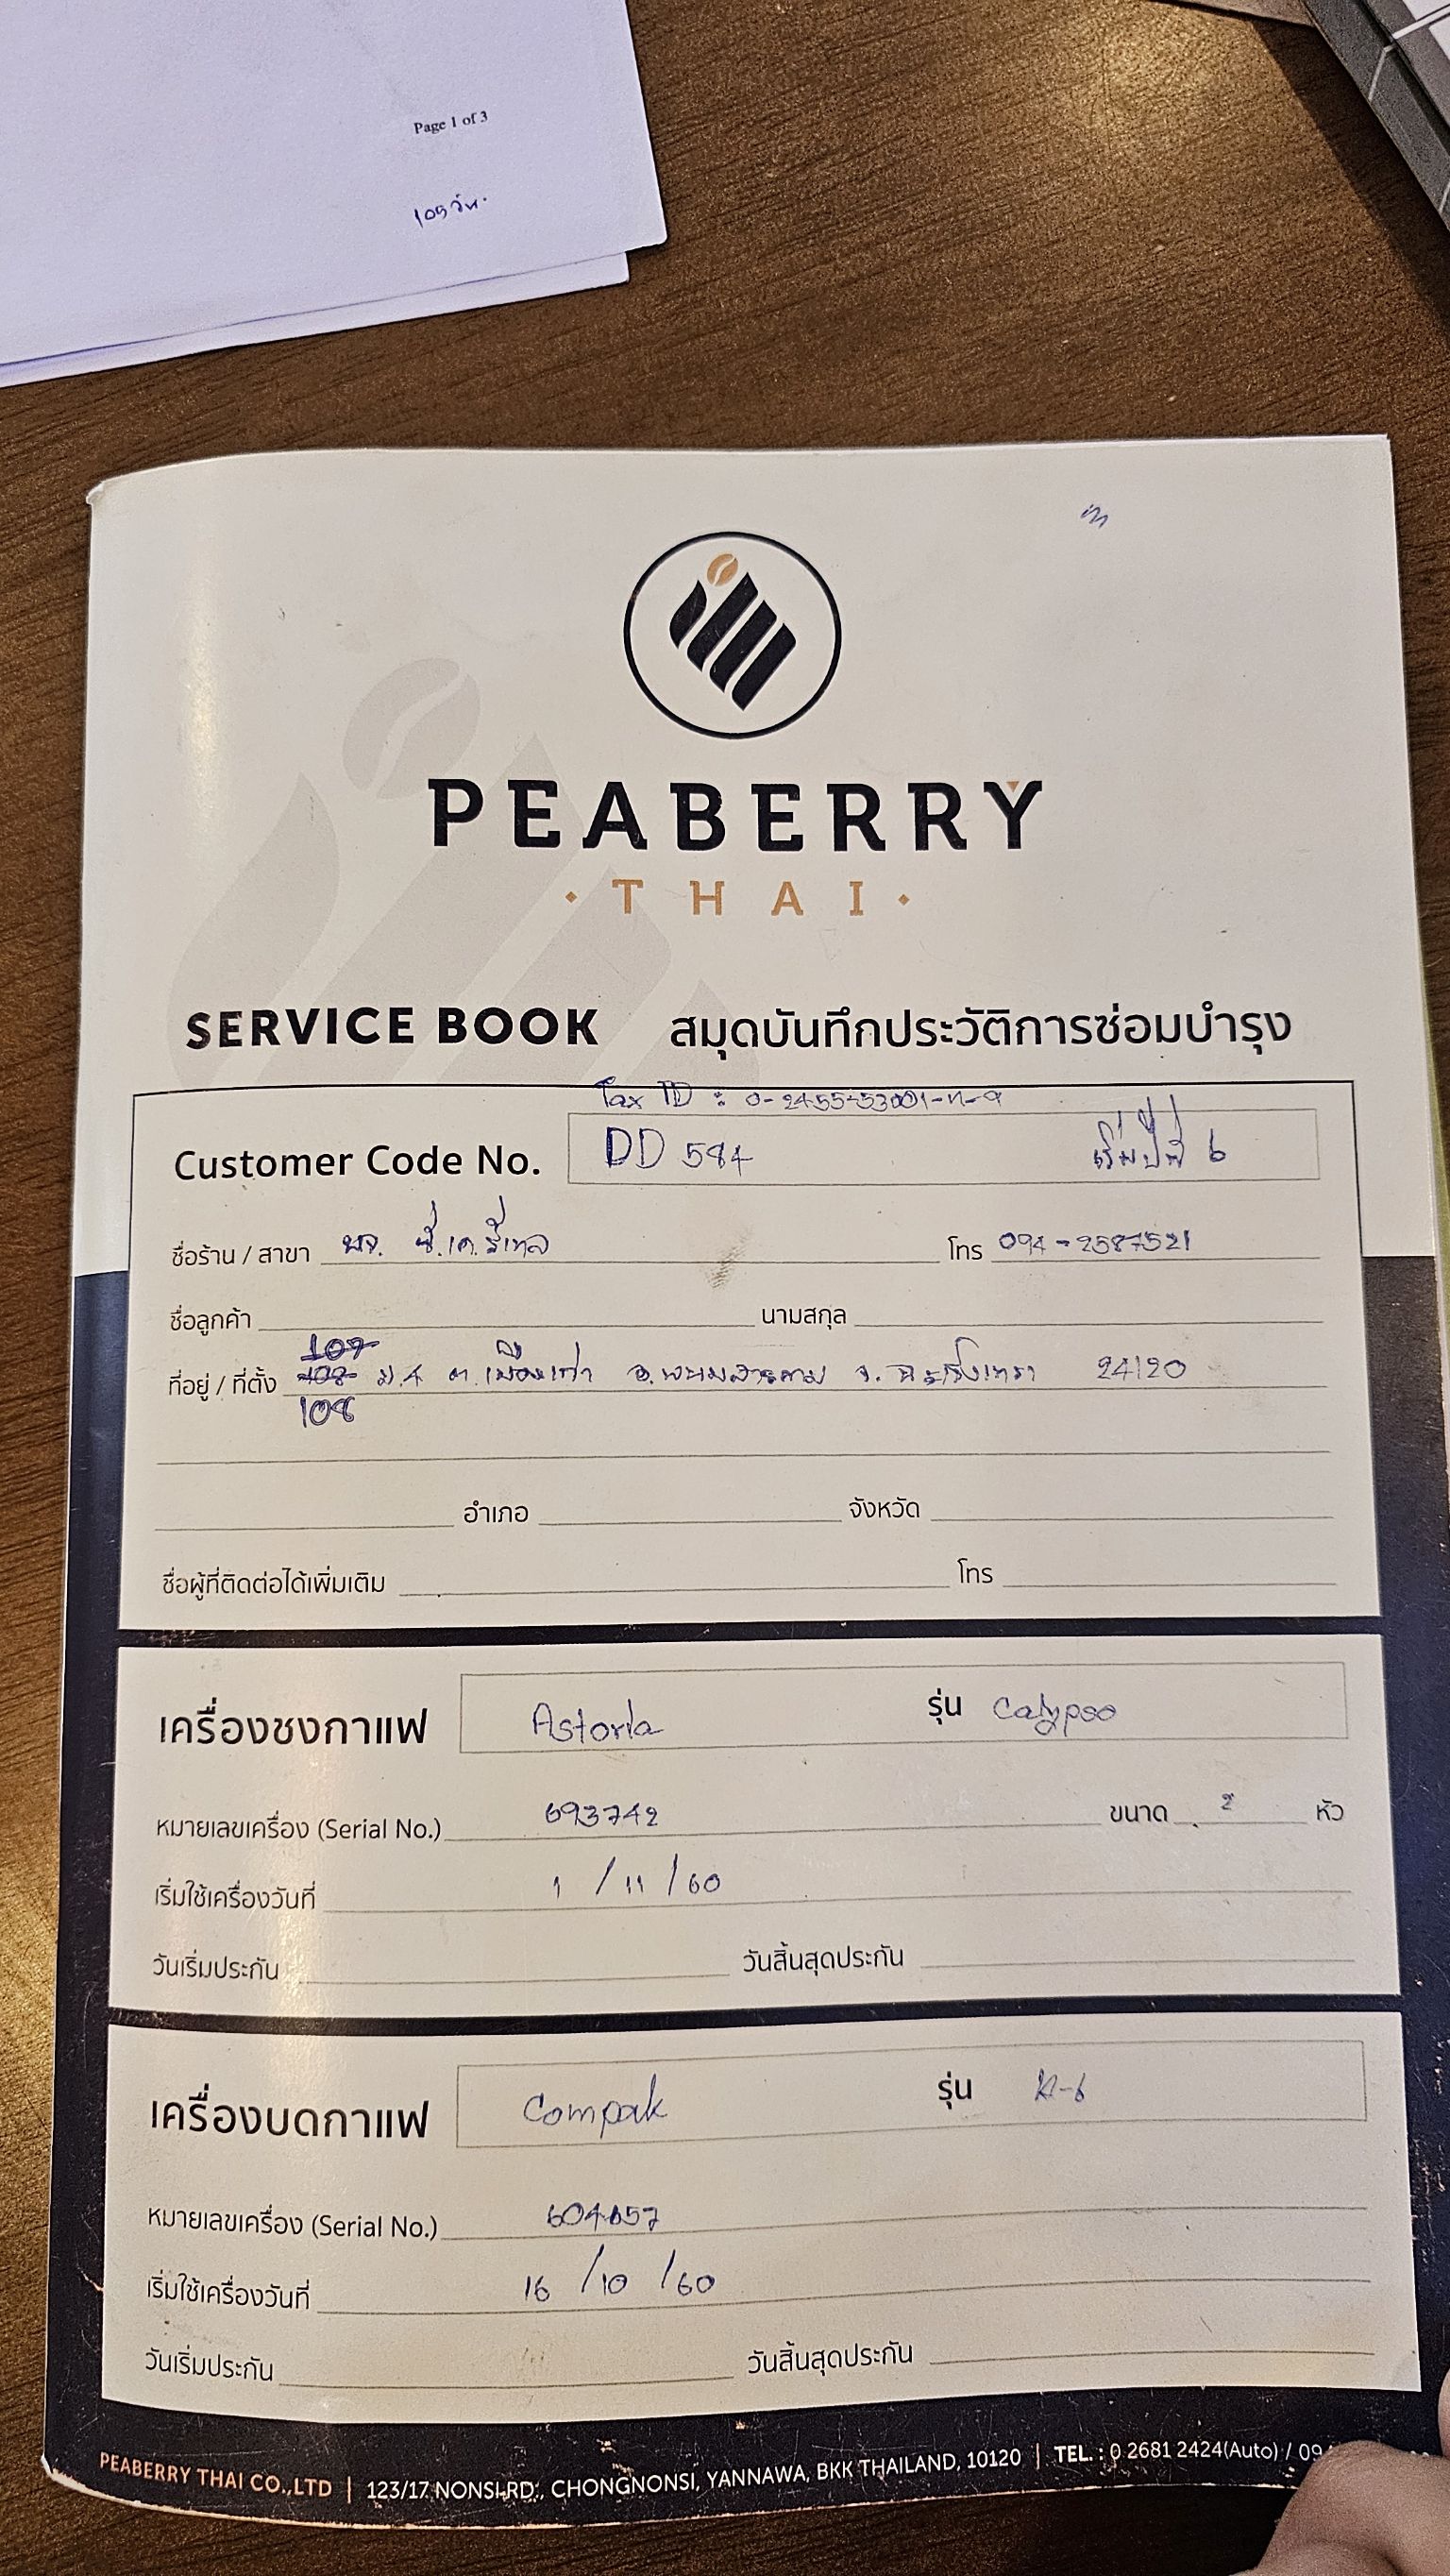 Page 1 of 3
PEABERRY
· THAI ·
SERVICE BOOK สมุดบันทึกประวัติการซ่อมบำรุง
Tax ID :
Customer Code No. DD 584 เริ่มปีที่ 6
ชื่อร้าน / สาขา โทร 094-2587521
ชื่อลูกค้า นามสกุล
107
ที่อยู่ / ที่ตั้ง ม.4 ต.เมืองเก่า อ.พนมสารคาม จ.ฉะเชิงเทรา 24120
108
อำเภอ จังหวัด
ชื่อผู้ที่ติดต่อได้เพิ่มเติม โทร
เครื่องชงกาแฟ Astoria รุ่น Calypso
หมายเลขเครื่อง (Serial No.) 693742 ขนาด 2 หัว
เริ่มใช้เครื่องวันที่ 1 / 11 / 60
วันเริ่มประกัน วันสิ้นสุดประกัน
เครื่องบดกาแฟ Compak รุ่น K-6
หมายเลขเครื่อง (Serial No.)
เริ่มใช้เครื่องวันที่ 16 / 10 / 60
วันเริ่มประกัน วันสิ้นสุดประกัน
PEABERRY THAI CO.,LTD | 123/17 NONSI RD., CHONGNONSI, YANNAWA, BKK THAILAND, 10120 | TEL. : 0 2681 2424(Auto) / 09